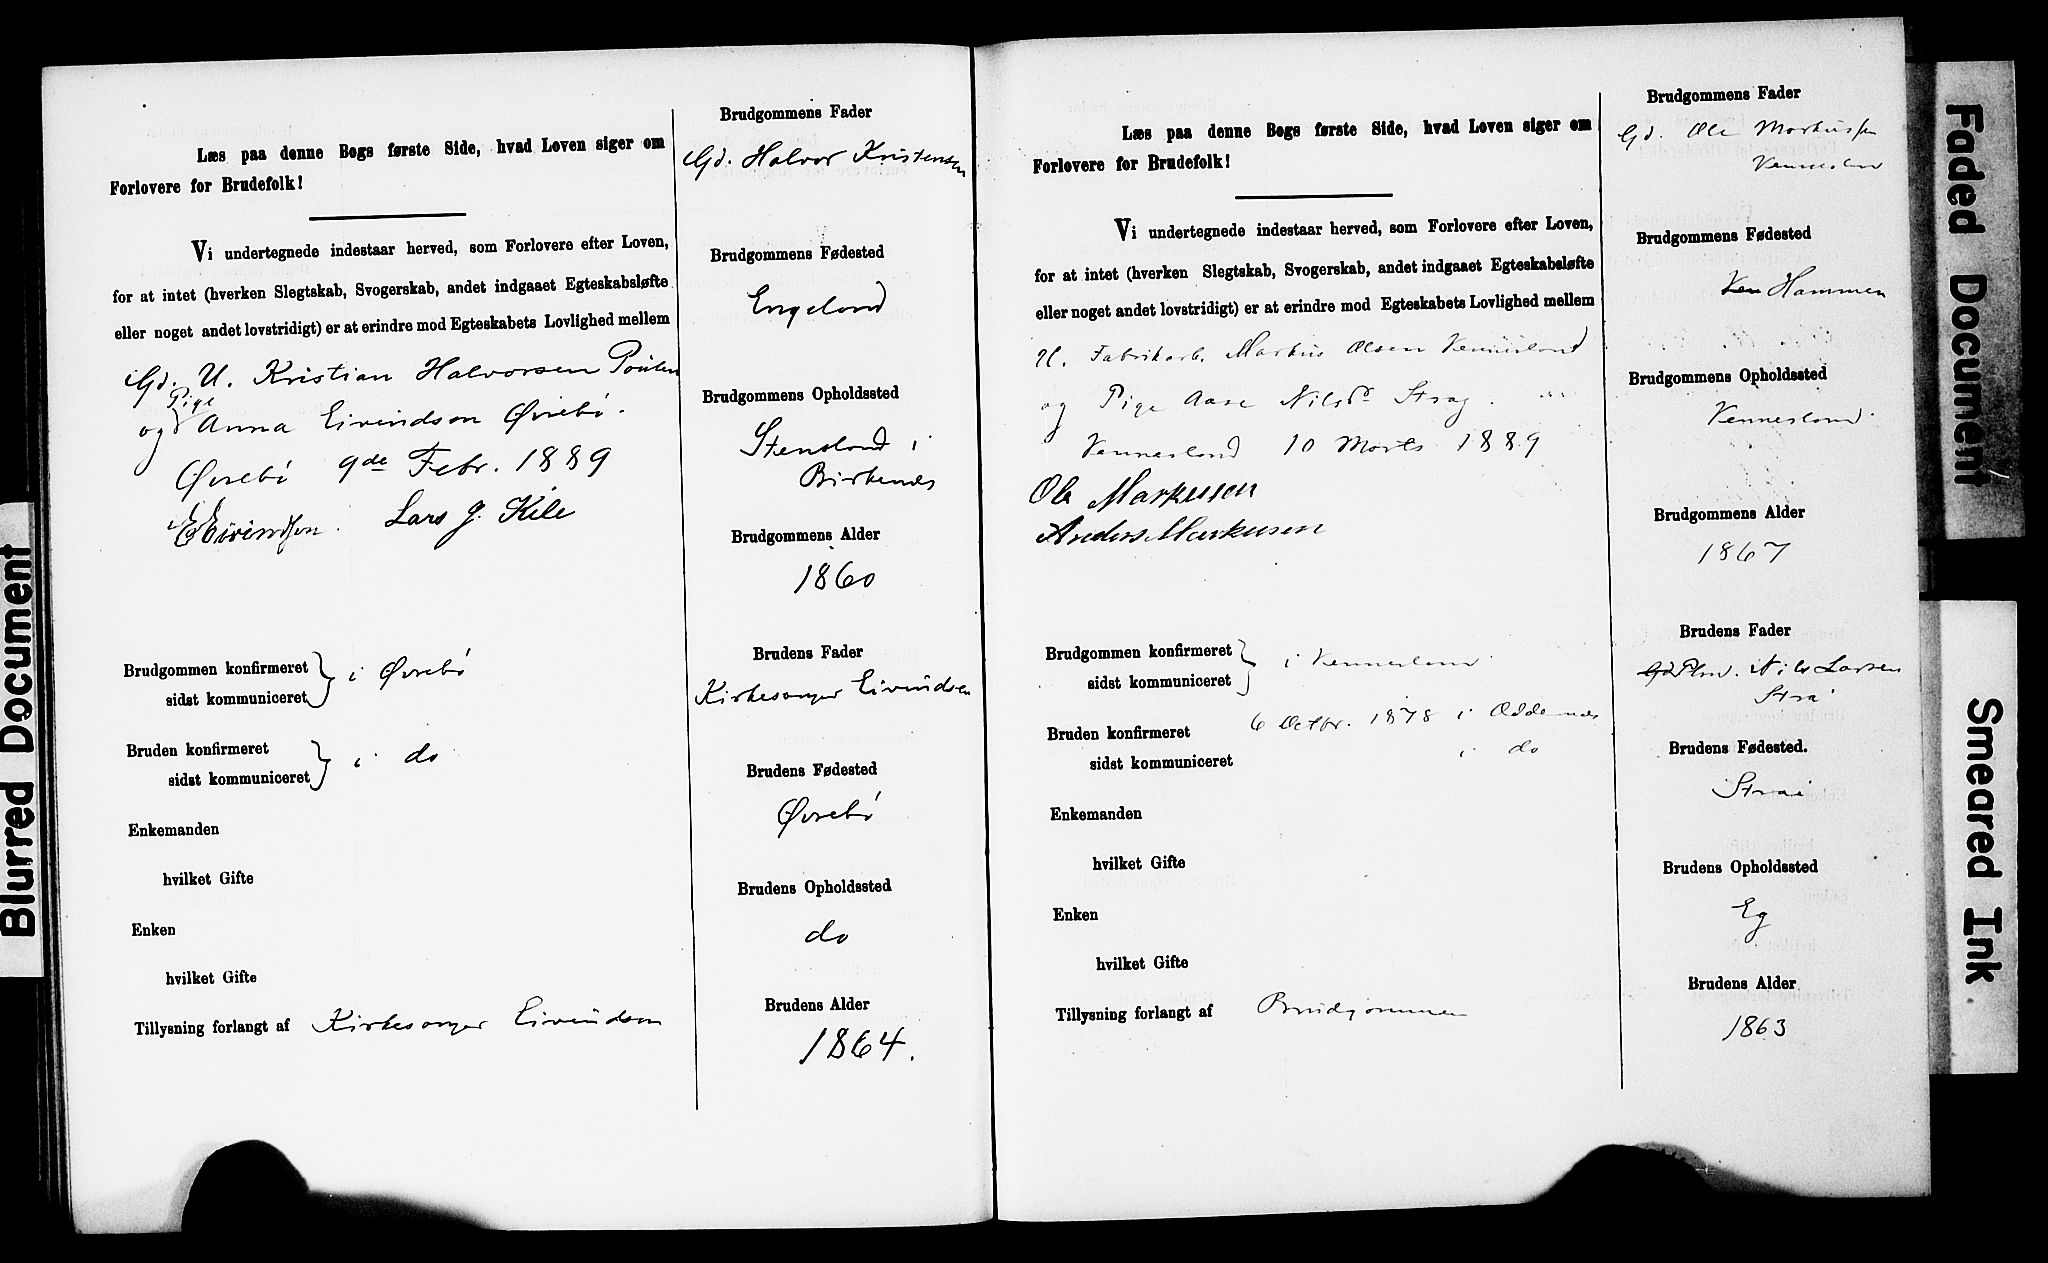 Læs paa denne Bogs første Side, hvad Loven siger om
Forlovere for Brudefolk!
Vi undertegnede indestaar herved, som Forlovere efter Loven,
for at intet (hverken Slegtskab, Svogerskab, andet indgaaet Egteskabsløfte
eller noget andet lovstridigt) er at erindre mod Egteskabets Lovlighed mellem
Gd. U. Kristian Halvorsen
Pige
og Anna Eivindsen Øvrebø.
Øvrebø 9de Febr. 1889
E Eivindsen. Lars G. Kile
Brudgommen konfirmeret
sidst kommuniceret
i Øvrebø
Bruden konfirmeret
sidst kommuniceret
i do
Enkemanden
hvilket Gifte
Enken
hvilket Gifte
Tillysning forlangt af Kirkesanger Eivindsen
Brudgommens Fader
Gd. Halvor Kristensen
Brudgommens Fødested
Engeland
Brudgommens Opholdssted
Stensland i
Birkenes
Brudgommens Alder
1860
Brudens Fader
Kirkesanger Eivindsen
Brudens Fødested
Øvrebø
Brudens Opholdssted
do
Brudens Alder
1864.
Læs paa denne Bogs første Side, hvad Loven siger om
Forlovere for Brudefolk!
Vi undertegnede indestaar herved, som Forlovere efter Loven,
for at intet (hverken Slegtskab, Svogerskab, andet indgaaet Egteskabsløfte
eller noget andet lovstridigt) er at erindre mod Egteskabets Lovlighed mellem
U. Fabrikarb. Markus Olsen Vennesland
og Pige Aase Nilsdr. Stray.
Vennesland 10 Marts 1889
Ole Markusen
Anders Markusen
Brudgommen konfirmeret
sidst kommuniceret
i Vennesland
Bruden konfirmeret
sidst kommuniceret
6 Octbr. 1878 i Oddernes
i do
Enkemanden
hvilket Gifte
Enken
hvilket Gifte
Tillysning forlangt af Brudgommen
Brudgommens Fader
Gd. Ole Markussen
Vennesland
Brudgommens Fødested
Ven Hammen
Brudgommens Opholdssted
Vennesland.
Brudgommens Alder
1867
Brudens Fader
Gd Plm. Nils Larsen
Strai
Brudens Fødested.
Strai
Brudens Opholdssted
Eg
Brudens Alder
1863
Blurred Document
Faded Document
Smeared Ink